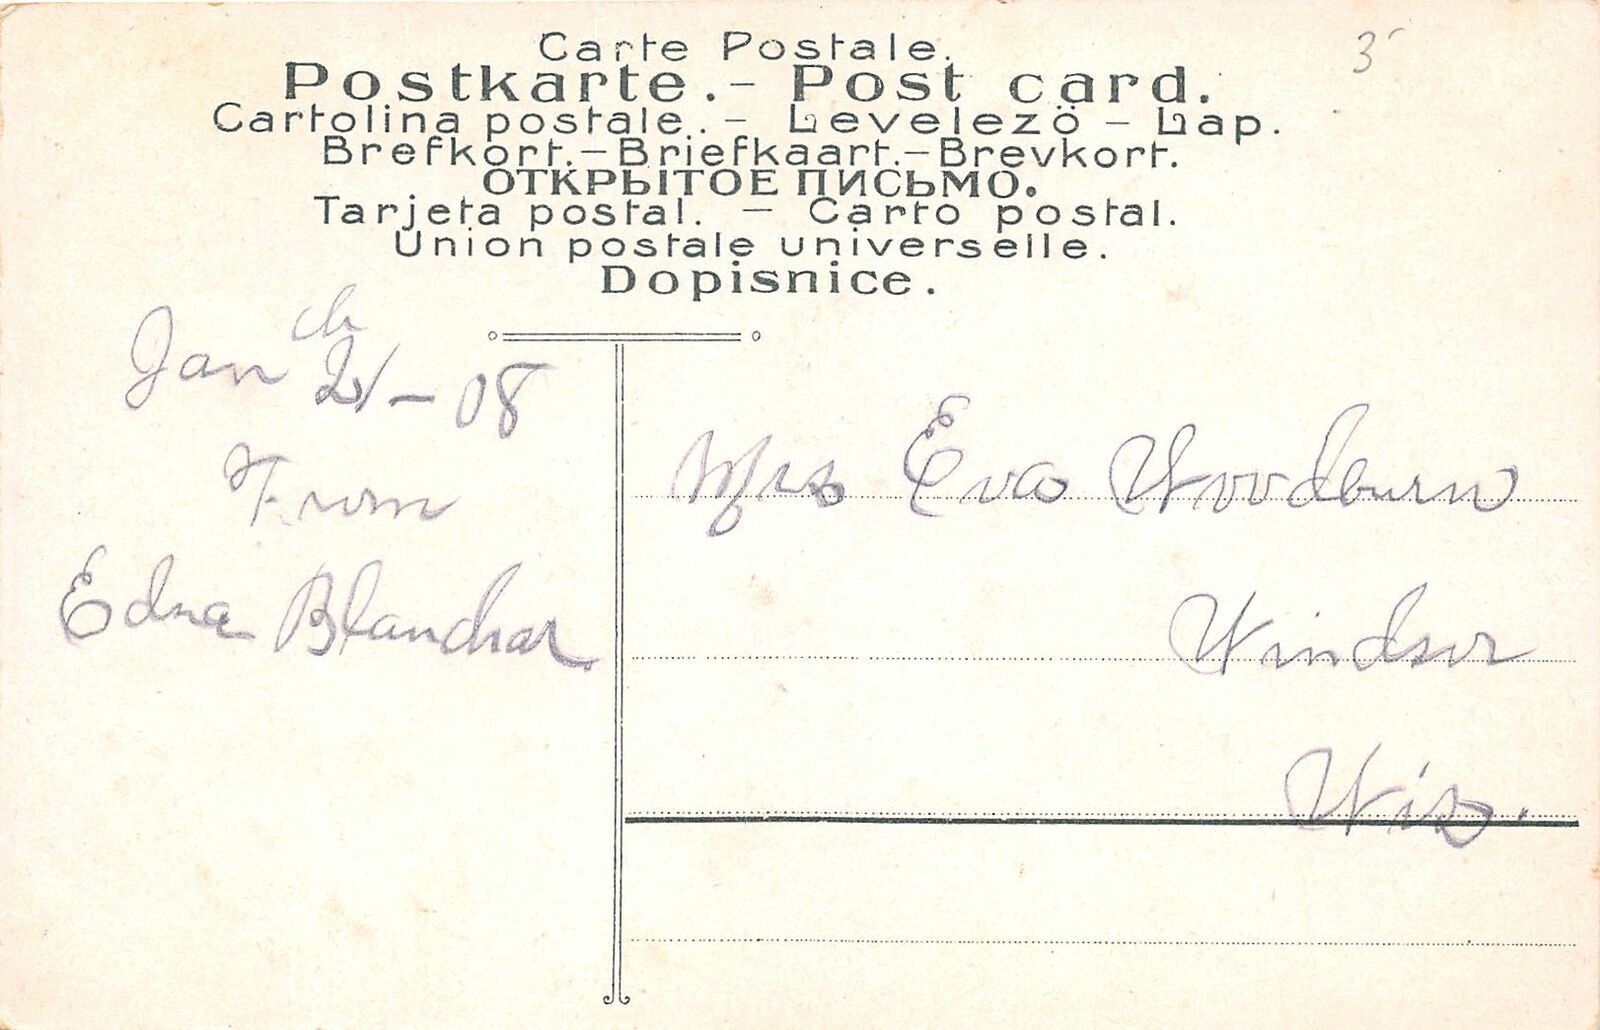 Carte Postale.
Postkarte.- Post card.
Cartolina postale.. - Levelezö - Lap.
Brefkort.-Briefkaart.-Brevkort.
ОТКРЫТОЕ ПИСЬМО.
Tarjeta postal. - Carto postal.
Union postale universelle.
Dopisnice.
3
Jan 21-08
From
Edna Blanchar
Mrs Eva Woodburn
Windsor
Wis.